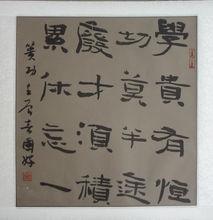 學貴有恒
切莫半途
廢才須積
累休忘一